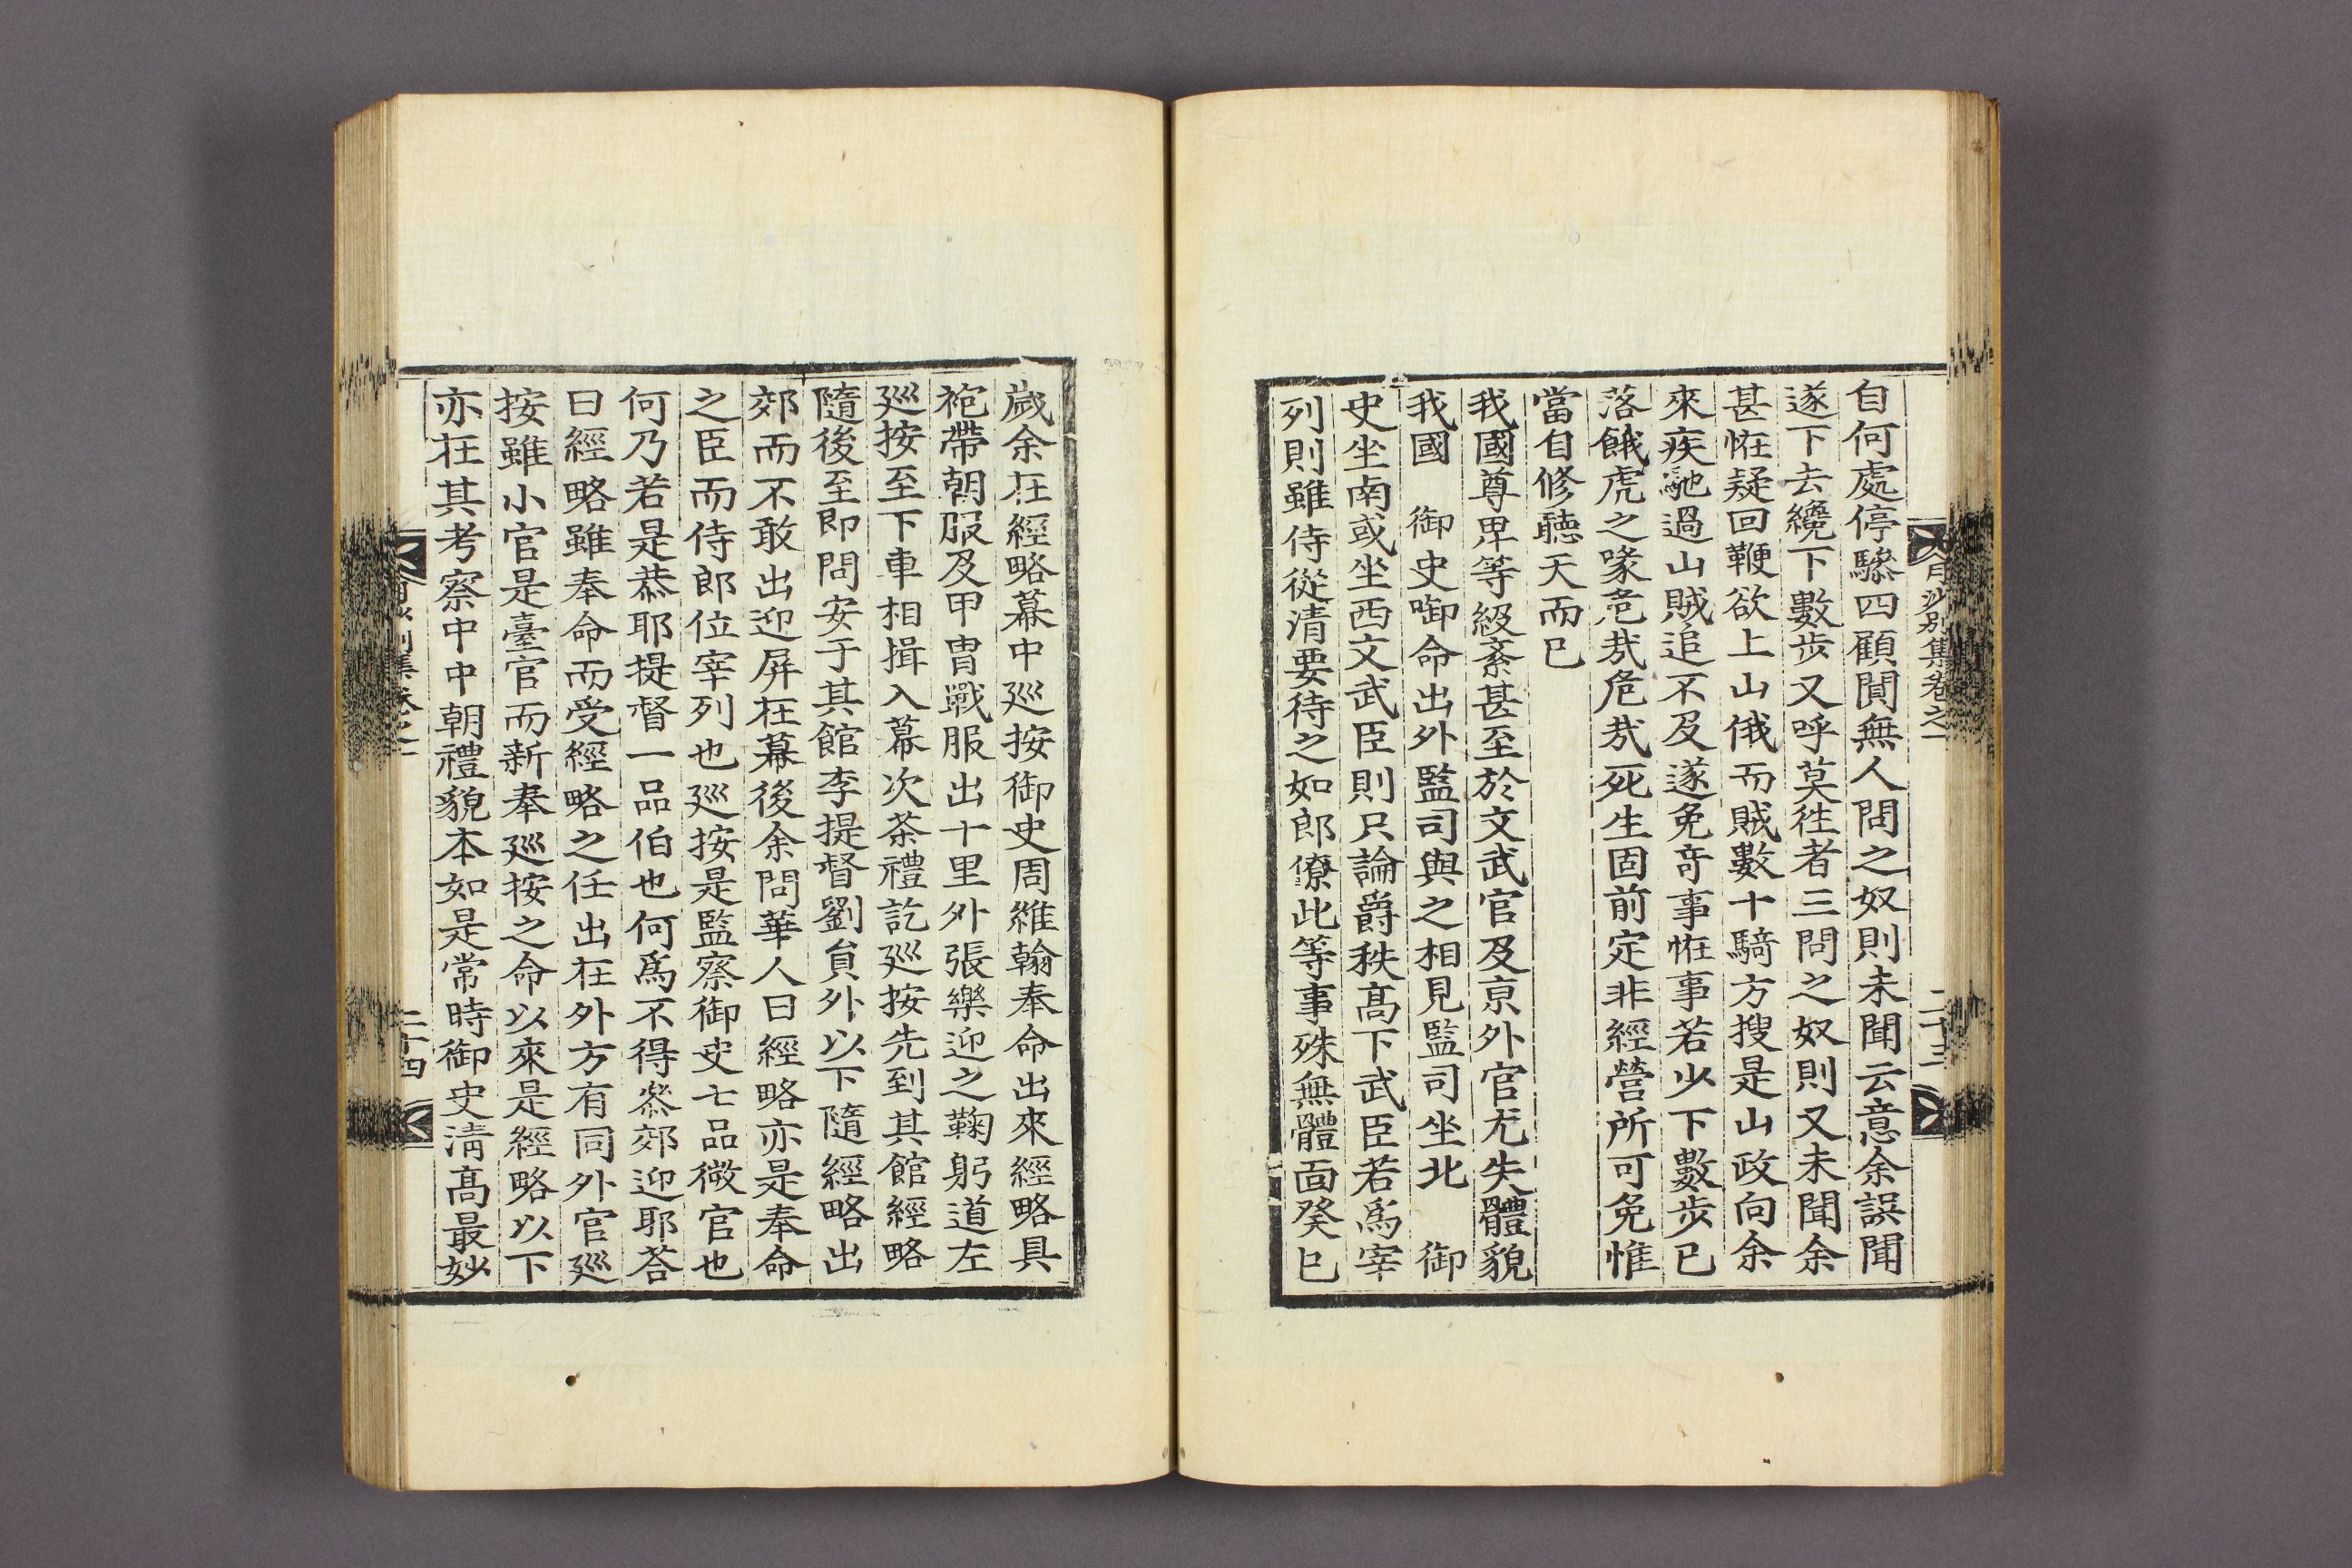 月沙別集卷之一
二十三
自何處停驂四顧闃無人問之奴則未聞云意余誤聞
遂下去纔下數步又呼莫徃者三問之奴則又未聞余
甚恠疑回鞭欲上山俄而賊數十騎方搜是山政向余
來疾馳過山賊追不及遂免奇事恠事若少下數步已
落餓虎之喙危哉危哉死生固前定非經營所可免惟
當自修聽天而已
我國尊卑等級紊甚至於文武官及京外官尤失體貌
我國 御史啣命出外監司與之相見監司坐北 御
史坐南或坐西文武臣則只論爵秩高下武臣若爲宰
列則雖侍從清要待之如郎僚此等事殊無體面癸巳
歲余在經略幕中廵按御史周維翰奉命出來經略具
袍帶朝服及甲冑戰服出十里外張樂迎之鞠躬道左
廵按至下車相揖入幕次茶禮訖廵按先到其館經略
隨後至即問安于其館李提督劉員外以下隨經略出
郊而不敢出迎屏在幕後余問華人曰經略亦是奉命
之臣而侍郎位宰列也廵按是監察御史七品微官也
何乃若是恭耶提督一品伯也何爲不得叅郊迎耶答
曰經略雖奉命而受經略之任出在外方有同外官廵
按雖小官是臺官而新奉廵按之命以來是經略以下
亦在其考察中中朝禮貌本如是常時御史淸高最妙
二十四